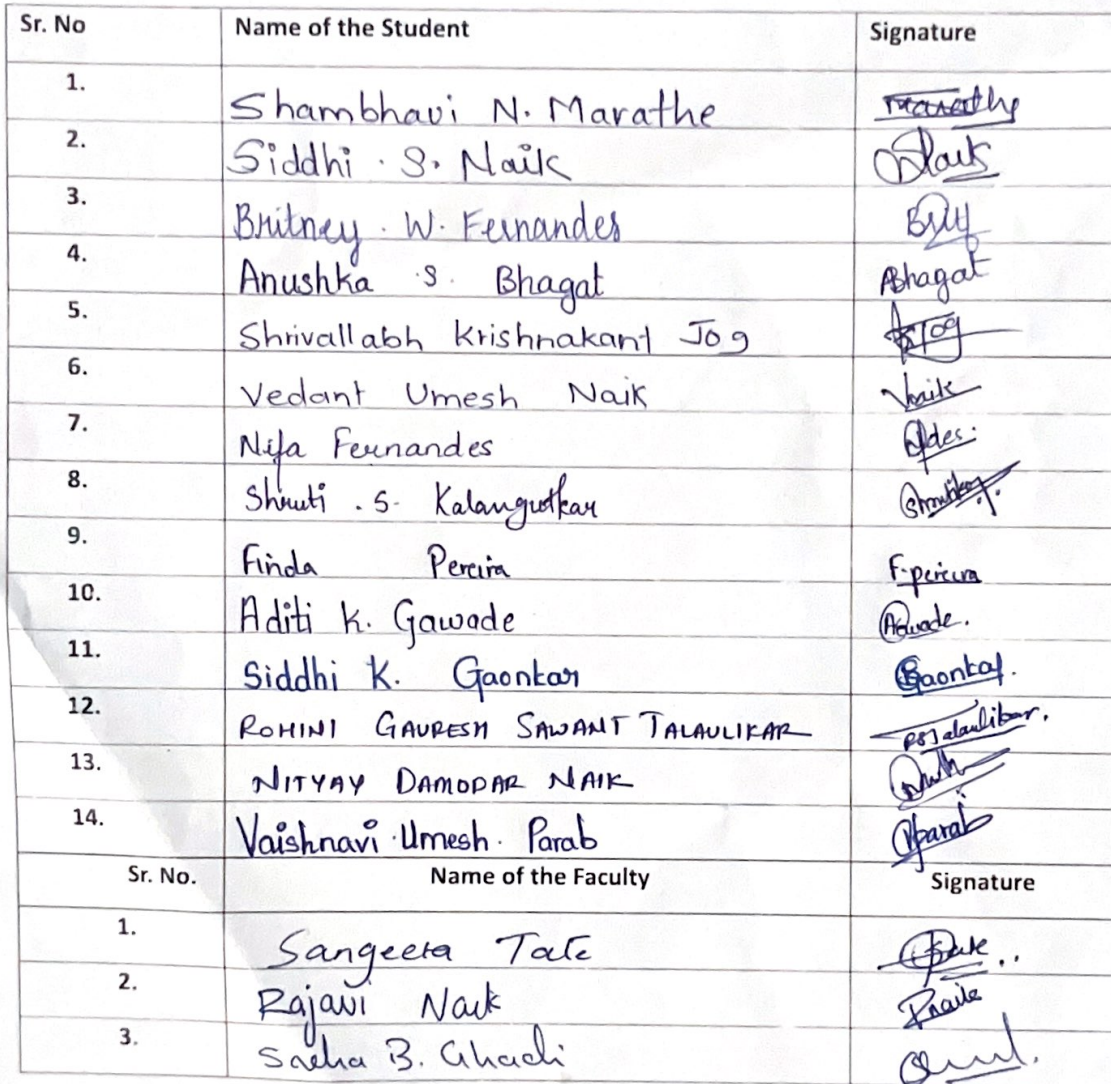 Sr. No Name of the Student Signature
1. Shambhavi N. Marathe Marathe
2. Siddhi . S. Naik Naik
3. Britney . W. Fernandes
4. Anushka S. Bhagat Bhagat
5. Shrivallabh Krishnakant Jog Jog
6. Vedant Umesh Naik Vnaik
7. Fernandes
8. Shruti . S. Kalangutkar
9. Finda Pereira F.pereira
10. Aditi K. Gawade
11. Siddhi K. Gaonkar Gaonkar.
12. ROHINI GAURESH SAWANT TALAULIKAR RSTalaulikar.
13. NITYAY DAMODAR NAIK
14. Vaishnavi Umesh . Parab Vparab
Sr. No. Name of the Faculty Signature
1. Sangeeta
2. Rajavi Naik Rnaik
3. B. Ghadi